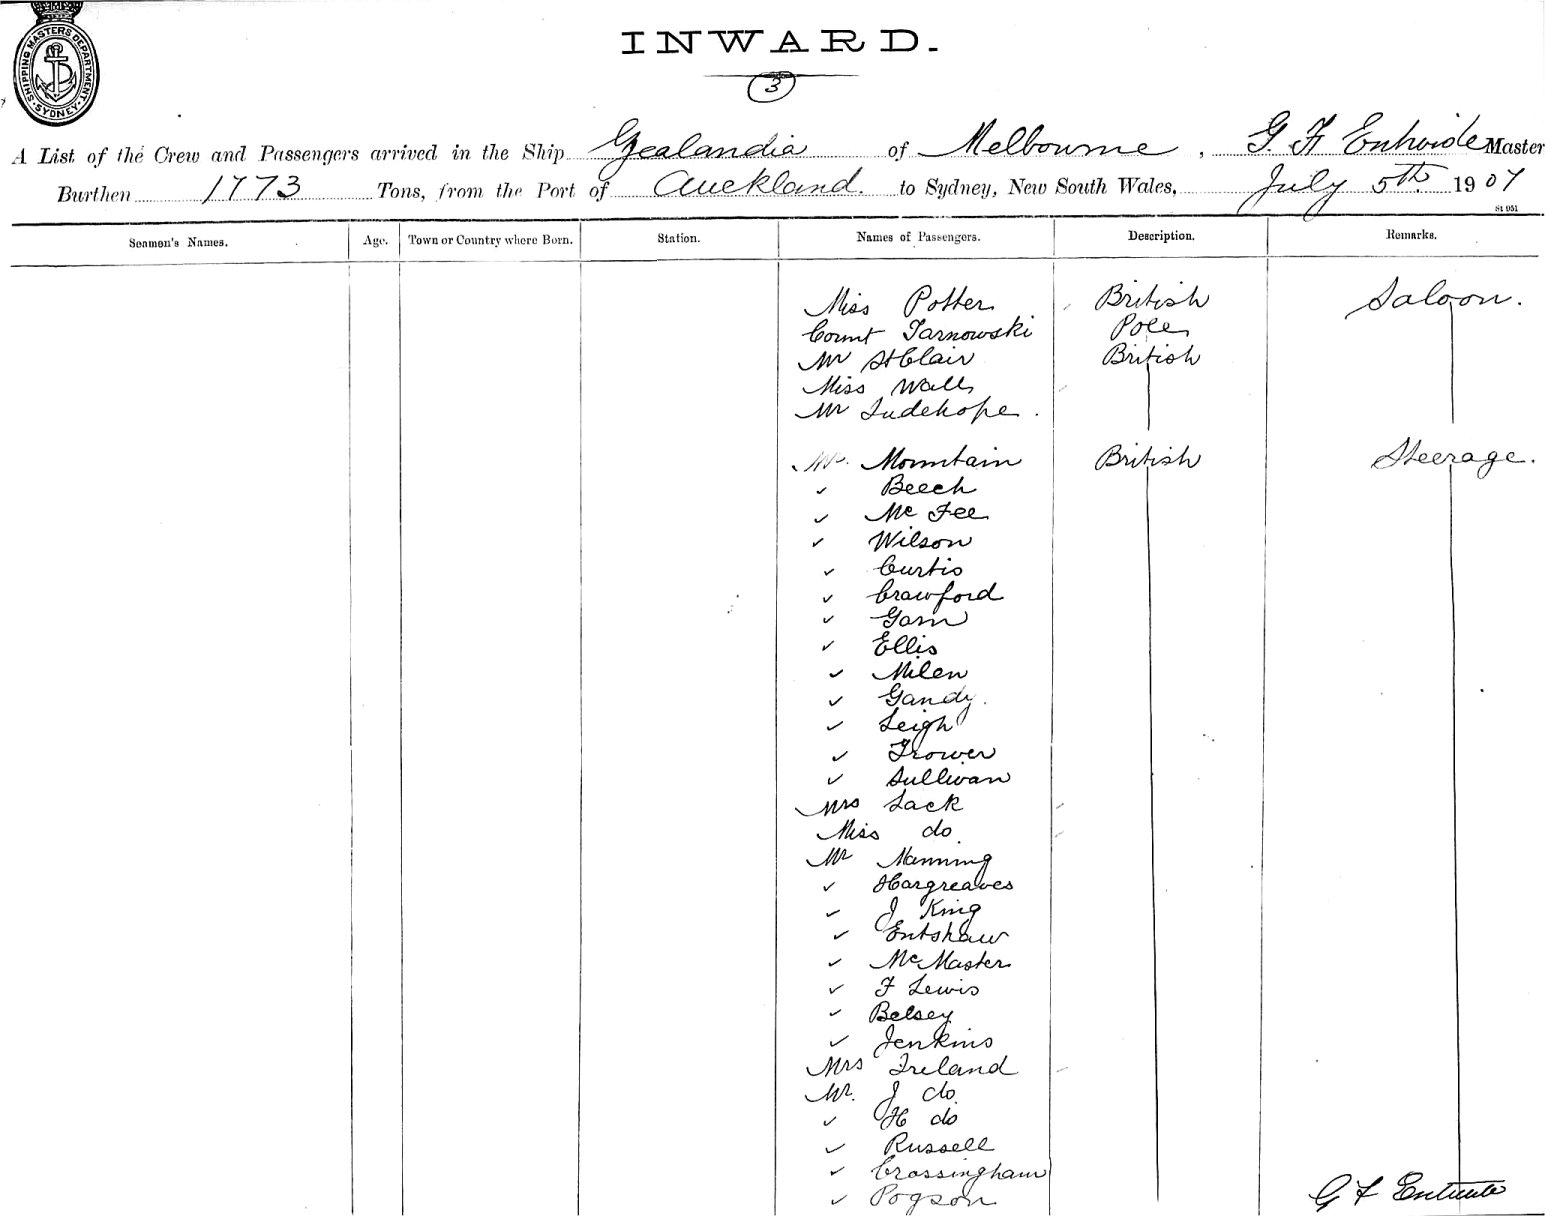 SHIPPING MASTERS DEPARTMENT. SYDNEY
INWARD.
3
A List of the Crew and Passengers arrived in the Ship Zealandia of Melbourne, G. F. Master
Burthen 1773 Tons, from the Port of Auckland. to Sydney, New South Wales, July 5th 1907
St 051
Seamen's Names. Age. Town or Country where Born. Station. Names of Passengers. Description. Remarks.
Miss Potter British Saloon.
Count Tarnowski Pole
Mr St Clair British
Miss Wall
Mr Judehope.
Mr. Mountain British Steerage.
✓ Beech
✓ Mc Fee
✓ Wilson
✓ Curtis
✓ Crawford
✓ Gam
✓ Ellis
✓ Milen
✓ Gandy.
✓ Leigh
✓ Trower
✓ Sullivan
Mrs Sack
Miss do
Mr Manning
✓ Hargreaves
✓ J King
✓ Entshaw
✓ Mc Master
✓ F Lewis
✓ Belsey
✓ Jenkins
Mrs Ireland
Mr. J do.
✓ H do
✓ Russell
✓ Crossingham
✓ Pogson
G F